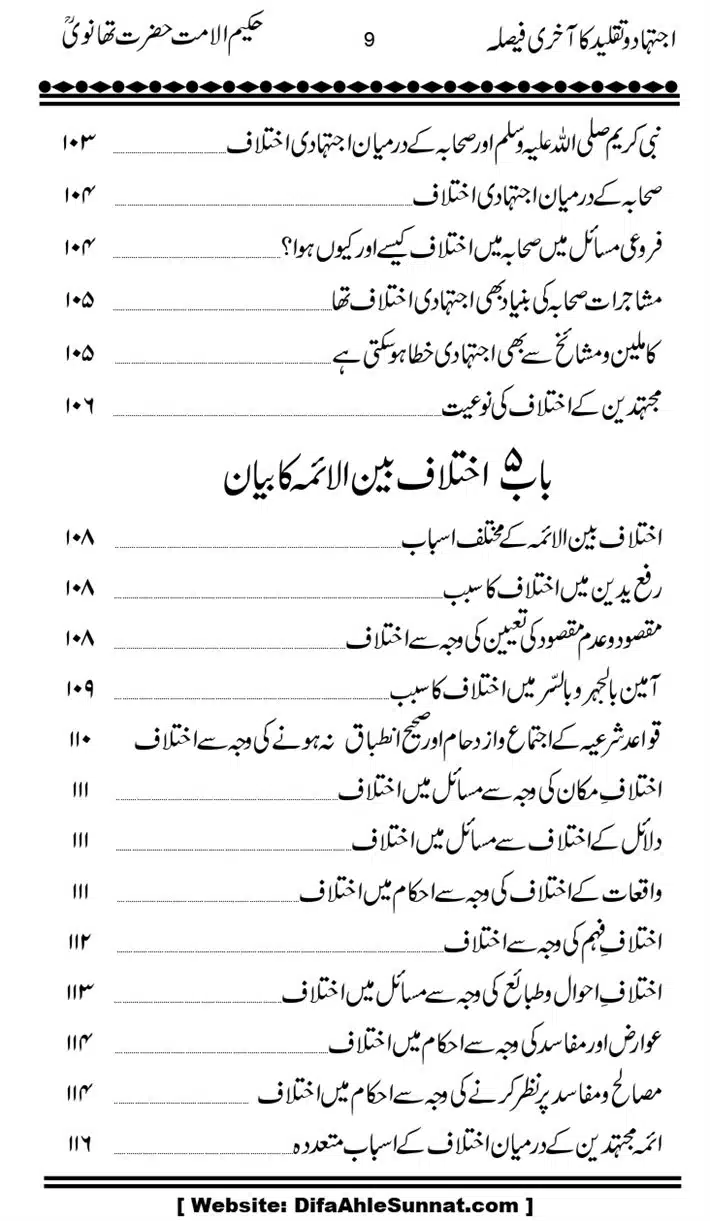 اجتہاد و تقلید کا آخری فیصلہ 9 حکیم الامت حضرت تھانویؒ
نبی کریم صلی اللہ علیہ وسلم اور صحابہ کے درمیان اجتہادی اختلاف ۱۰۳
صحابہ کے درمیان اجتہادی اختلاف ۱۰۴
فروعی مسائل میں صحابہ میں اختلاف کیسے اور کیوں ہوا؟ ۱۰۴
مشاجرات صحابہ کی بنیاد بھی اجتہادی اختلاف تھا ۱۰۵
کاملین و مشائخ سے بھی اجتہادی خطا ہو سکتی ہے ۱۰۵
مجتہدین کے اختلاف کی نوعیت ۱۰۶
باب ۵ اختلاف بین الائمہ کا بیان
اختلاف بین الائمہ کے مختلف اسباب ۱۰۸
رفع یدین میں اختلاف کا سبب ۱۰۸
مقصود و عدم مقصود کی تعیین کی وجہ سے اختلاف ۱۰۸
آمین بالجہر و بالسّر میں اختلاف کا سبب ۱۰۹
قواعد شرعیہ کے اجتماع و ازدحام اور صحیح انطباق نہ ہونے کی وجہ سے اختلاف ۱۱۰
اختلافِ مکان کی وجہ سے مسائل میں اختلاف ۱۱۱
دلائل کے اختلاف سے مسائل میں اختلاف ۱۱۱
واقعات کے اختلاف کی وجہ سے احکام میں اختلاف ۱۱۱
اختلافِ فہم کی وجہ سے اختلاف ۱۱۲
اختلافِ احوال و طبائع کی وجہ سے مسائل میں اختلاف ۱۱۳
عوارض اور مفاسد کی وجہ سے احکام میں اختلاف ۱۱۴
مصالح و مفاسد پر نظر کرنے کی وجہ سے احکام میں اختلاف ۱۱۴
ائمہ مجتہدین کے درمیان اختلاف کے اسباب متعددہ ۱۱۶
[ Website: DifaAhleSunnat.com ]